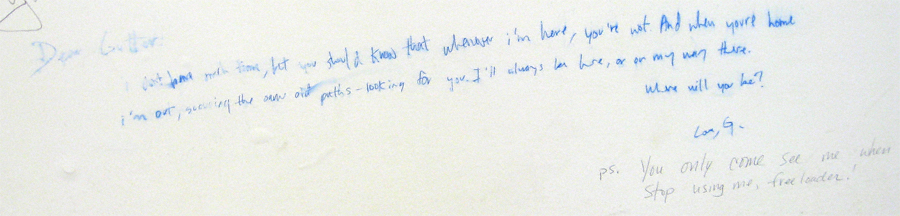 Dear
i don't have much time, but you should know that whenever i'm here, you're not. And when you're home
i'm out, running the same old paths - looking for you. I'll always be here, or on my way there.
Where will you be?
Love, G.
ps. You only come see me when
Stop using me, freeloader!